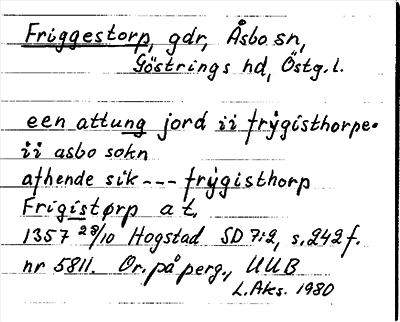 Friggestorp, gdr, Åsbo sn,
Göstrings hd, Östg.l.
een attung jord ii frÿgisthorpe.
ii asbo sokn
afhende sik --- frÿgisthorp
Frigistørp a t.
1357 28/10 Hogstad SD 7:2, s.242f.
nr 5811. Or. på perg., UUB
L.Aks. 1980